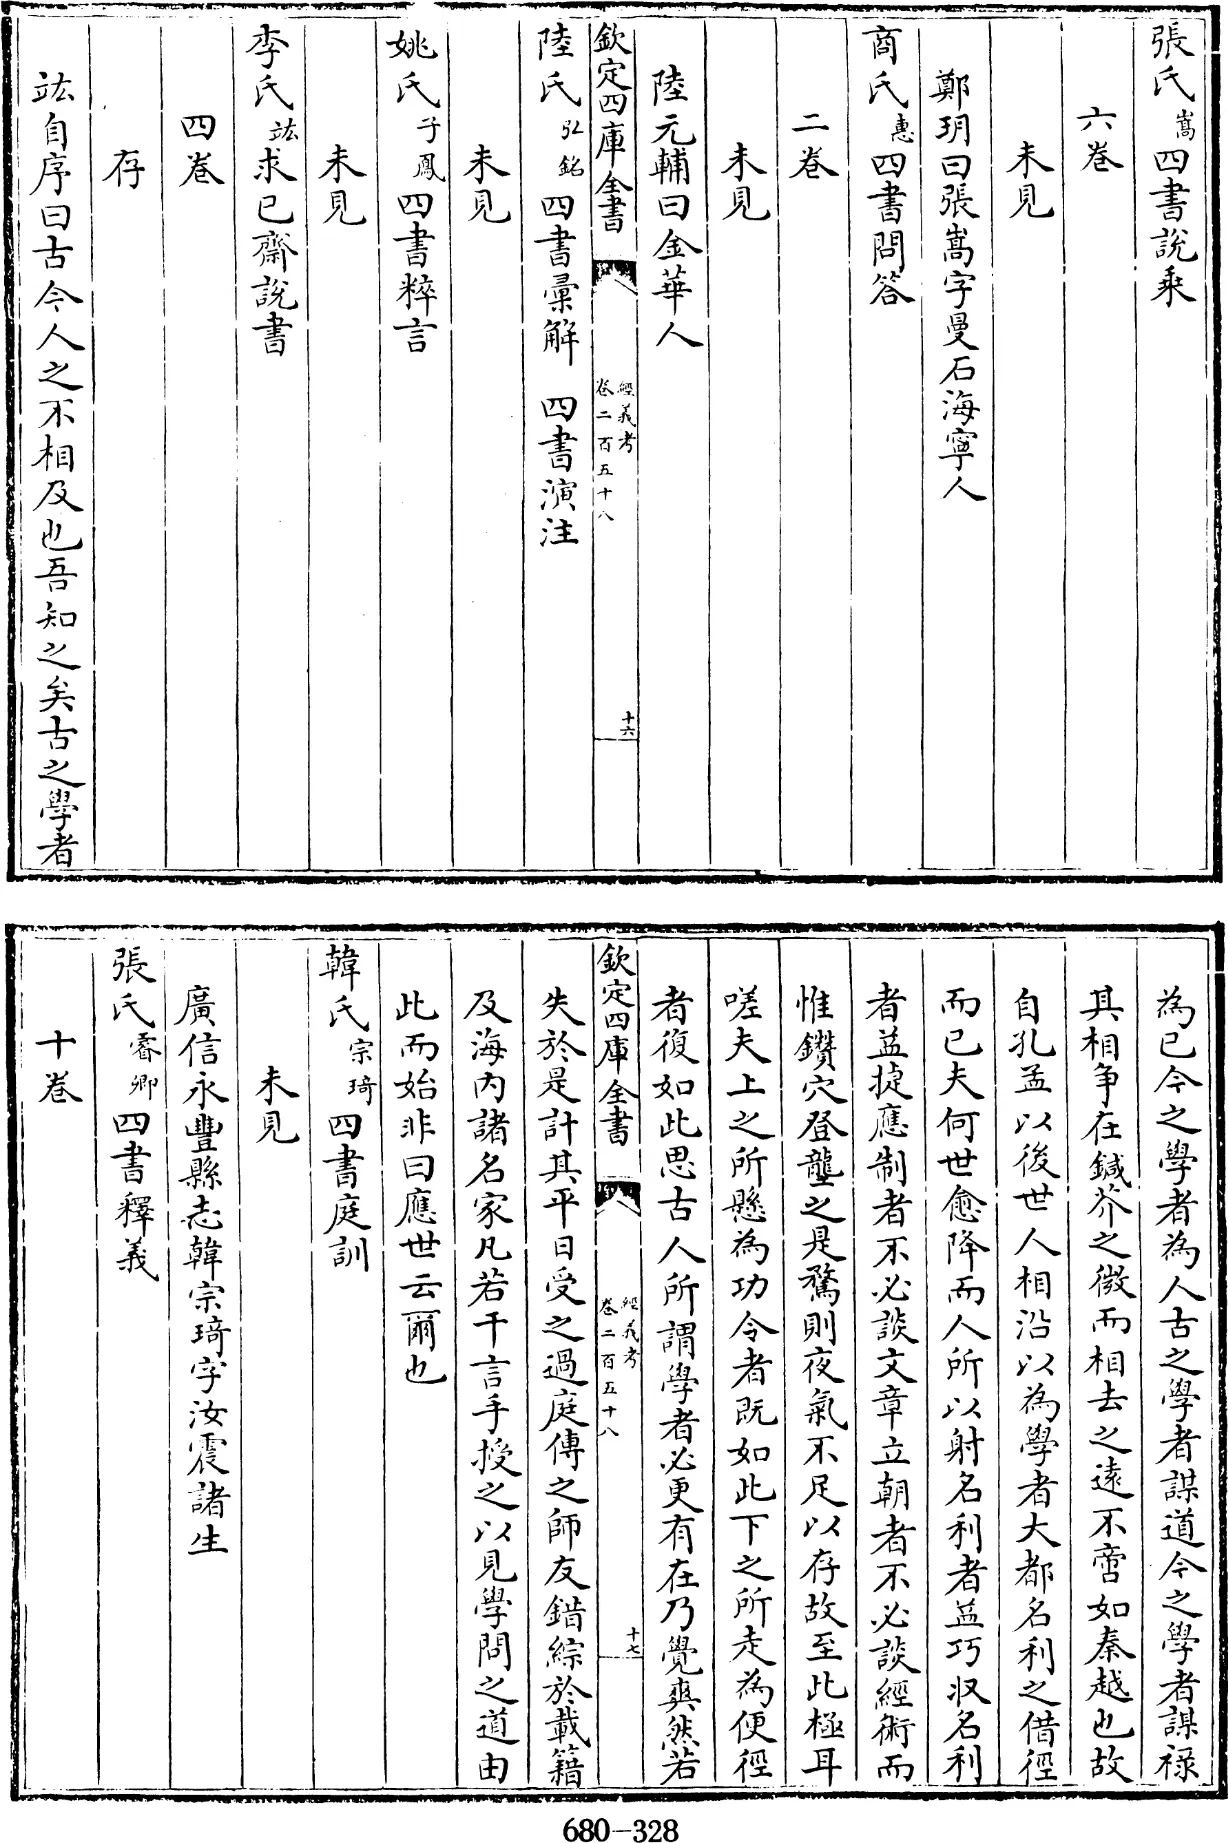 張氏嵩四書說乘
六卷
未見
鄭玥曰張嵩字曼石海寧人
商氏惠四書問答
二卷
未見
陸元輔曰金華人
欽定四庫全書
經義考
卷二百五十八
十六
陸氏弘銘四書彙解 四書演注
未見
姚氏子鳳四書粹言
未見
李氏竑求已齋說書
四卷
存
竑自序曰古今人之不相及也吾知之矣古之學者
為已今之學者為人古之學者謀道今之學者謀祿
其相争在鍼芥之微而相去之遠不啻如秦越也故
自孔孟以後世人相沿以為學者大都名利之借徑
而已夫何世愈降而人所以射名利者益巧收名利
者益捷應制者不必談文章立朝者不必談經術而
惟鑽穴登壟之是騖則夜氣不足以存故至此極耳
嗟夫上之所懸為功令者既如此下之所走為便徑
者復如此思古人所謂學者必更有在乃覺爽然若
欽定四庫全書
經義考
卷二百五十八
十七
失於是計其平日受之過庭傳之師友錯綜於載籍
及海内諸名家凡若干言手授之以見學問之道由
此而始非曰應世云爾也
韓氏宗琦四書庭訓
未見
廣信永豐縣志韓宗琦字汝震諸生
張氏睿卿四書釋義
十卷
680-328